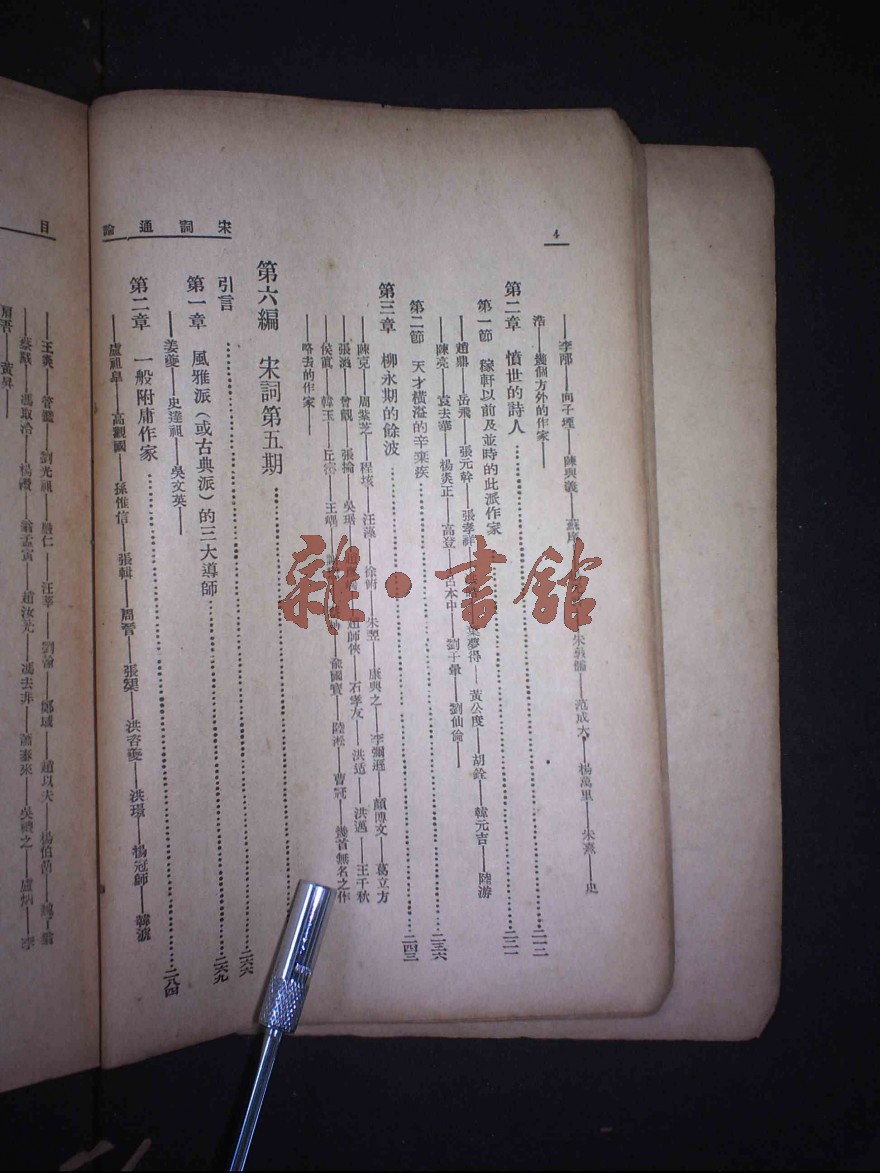 4
——李邴——向子堙——陳與義——范成大——楊萬里——朱熹——史
浩——幾個方外的作家——二一二
第二章 憤世的詩人二二一
第一節 稼軒以前及並時的此派作家
——趙鼎——岳飛——張元幹——張孝祥——葉夢得——黃公度——胡銓——韓元吉——陸游
——陳亮——袁去華——楊炎正——高登——呂本中——劉子翬——劉仙倫——二三六
第二節 天才橫溢的辛棄疾二四三
第三章 柳永期的餘波
——陳克——周紫芝——程垓——汪藻——徐俯——朱翌——康與之——李彌遜——顏博文——葛立方
——張綱——曾覿——張掄——吳琚——趙師俠——石孝友——洪适——洪邁——王千秋
——侯寘——韓玉——丘崈——王嵎——俞國寶——陸淞——曹冠——幾首無名之作
略去的作家——
第六編 宋詞第五期
引言二六六
第一章 風雅派（或古典派）的三大導師二六九
——姜夔——史達祖——吳文英——
第二章 一般附庸作家二八四
——盧祖皋——高觀國——孫惟信——張輯——周晉——張榘——洪咨夔——洪瑹——楊冠師——韓淲
宋詞通論
目
——王炎——管鑑——劉光祖——汪莘——劉翰——趙以夫——楊伯嵒——魏了翁
——蔡戡——馮取洽——楊纘——翁孟寅——趙汝茪——馮去非——蕭泰來——吳禮之——盧炳——李